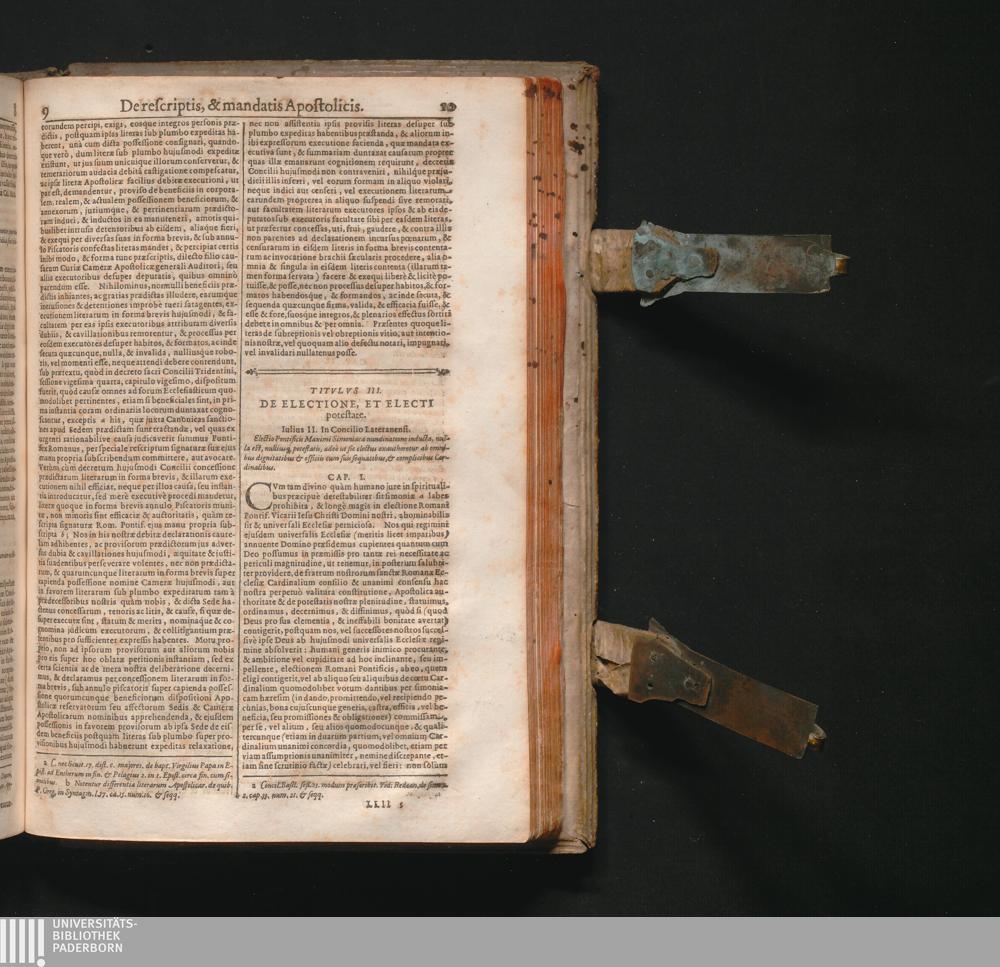 9 De rescriptis, & mandatis Apostolicis. 10
eorundem percipi, exigi, eosque integros personis præ-
dictis, postquam ipsos literas sub plumbo expeditas ha-
berent, unà cum dicta possessione consignari, quando-
que verò, dum literæ sub plumbo hujusmodi expeditæ
existunt, ut jus suum unicuique illorum conservetur, &
temerariorum audacia debita castigatione compescatur,
ac ipsæ literæ Apostolicæ facilius debitæ executioni, ut
par est, demandentur, proviso de beneficiis in corpora-
lem, realem, & actualem possessionem beneficiorum, &
annexorum, juriumque, & pertinentiarum prædicto-
ram induci, & inductos in ea manuteneri, amotis qui-
buslibet intrusis detentoribus ab eisdem, aliaque fieri,
& exequi per diversas suas in forma brevis, & sub annu-
lo Piscatoris confectas literas mandet, & percipiat certis
inibi modo, & forma tunc præscriptis, dilecto filio cau-
sarum Curiæ Cameræ Apostolicæ generali Auditori, seu
aliis executoribus desuper deputatis, quibus omninò
parendum esse. Nihilominus, nonnulli beneficiis præ-
dictis inhiantes, ac gratias prædictas illudere, earumque
intrusiones & detentiones improbè tueri satagentes, ex-
ecutionem literarum in forma brevis hujusmodi, & fa-
cultatem per eas ipsis executoribus attributam diversis
dubiis, & cavillationibus remorentur, & processus per
eosdem executores desuper habitos, & formatos, ac inde
secuta quæcunque, nulla, & invalida, nulliusque robo-
ris, vel momenti esse, neque attendi debere contendunt,
sub prætextu, quòd in decreto sacri Concilii Tridentini,
sessione vigesima quarta, capitulo vigesimo, dispositum
fuerit, quòd causæ omnes ad forum Ecclesiasticum quo-
modolibet pertinentes, etiam si beneficiales sint, in pri-
ma instantia coram ordinariis locorum duntaxat cogno-
scantur, exceptis a his, quæ juxta Canonicas sanctio-
nes apud Sedem prædictam sunt tractandæ, vel quas ex
urgenti rationabilive causa judicaverit summus Ponti-
fex Romanus, per speciale rescriptum signaturæ suæ ejus
manu propria subscribendum committere, aut avocare.
Verùm cùm decretum hujusmodi Concilii concessione
prædictarum literarum in forma brevis, & illarum exe-
cutionem nihil efficiat, neque per illos causa, seu instan-
tia introducatur, sed merè executivè procedi mandetur,
literæ quoque in forma brevis annulo Piscatoris muni-
tæ, non minoris sint efficaciæ & auctoritatis, quàm re-
scripta signatura Rom. Pontif. ejus manu propria sub-
scripta b; Nos in his nostræ debitæ declarationis caute-
lam adhibentes, ac provisorum prædictorum jus adver-
sus dubia & cavillationes hujusmodi, æquitate & justi-
tia suadentibus perseverare volentes, nec non prædicta-
rum, & quarumcunque literarum in forma brevis super
capienda possessione nomine Cameræ hujusmodi, aut
in favorem literarum sub plumbo expeditarum tam à
prædecessoribus nostris quàm nobis, & dicta Sede ha-
ctenus concessarum, tenoris ac litis, & causæ, si quæ de-
super executæ sint, statum & merita, nominaque & co-
gnomina judicum executorum, & collitigantium præ-
sentibus pro sufficienter expressis habentes. Motu pro-
prio, non ad ipsorum provisorum aut aliorum nobis
pro eis super hoc oblatæ petitionis instantiam, sed ex
certa scientia ac de mera nostra deliberatione decerni-
mus, & declaramus per concessionem literarum in for-
ma brevis, sub annulo piscatoris super capienda posses-
sione quorumcunque beneficiorum dispositioni Apo-
stolicæ reservatorum seu affectorum Sedis & Cameræ
Apostolicarum nominibus apprehendenda, & ejusdem
possessionis in favorem provisorum ab ipsa Sede de eis-
dem beneficiis postquam literas sub plumbo super pro-
visionibus hujusmodi habuerunt expeditas relaxatione,
a C. nec sicut. 17. dist. c. majores. de bapt. Virgilius Papa in E-
pist. ad Eutherum in fin. & Pelagius 2. in 1. Epist. circa fin. cum si-
milibus. b Notentur differentiæ literarum Apostolicar. de quib.
P. Greg. in Syntagm. l. 17. ca. 15. num. 16. & seqq.
nec non assistentia ipsis provisis literas desuper sub
plumbo expeditas habentibus præstanda, & aliorum in-
ibi expressorum executione facienda, quæ mandata ex-
ecutiva sunt, & summariam duntaxat causarum propter
quas illa emanarunt cognitionem requirunt, decretis
Concilii hujusmodi non contraveniri, nihilque præju-
dicii illis inferri, vel eorum formam in aliquo violari,
neque indici aut censeri, vel executionem literarum
earundem propterea in aliquo suspendi sive remorari,
aut facultatem literarum executores ipsos & ab eis de-
putatos sub executoris facultate sibi per easdem literas,
ut præfertur concessas, uti, frui, gaudere, & contra illis
non parentes ad declarationem incursus pœnarum, &
censurarum in eisdem literis in forma brevis contenta-
rum ac invocatione brachii sæcularis procedere, alia o-
mnia & singula in eisdem literis contenta (illarum ta-
men forma servata) facere & exequi liberè & licitè po-
tuisse, & posse, nec non processus desuper habitos, & for-
matos habendosque, & formandos, ac inde secuta, &
sequenda quæcunque firma, valida, & efficacia fuisse, &
esse & fore, suosque integros, & plenarios effectus sortiri
debere in omnibus & per omnia. Præsentes quoque li-
teras de subreptionis vel obreptionis vitio, aut intentio-
nis nostræ, vel quoquam alio defectu notari, impugnari,
vel invalidari nullatenus posse.
TITULUS III.
DE ELECTIONE, ET ELECTI
potestate.
Iulius II. In Concilio Lateranensi.
Electio Pontificis Maximi Simoniaca nundinatione inducta, nul-
la est, nulliusq; potestatis, adeò ut sic electus exauthoretur ab omni-
bus dignitatibus & officiis cum suis sequacibus, & complicibus Car-
dinalibus.
CAP. I.
CVm tam divino quàm humano jure in spirituali-
bus præcipuè detestabiliter sit simoniæ a labes
prohibita, & longè magis in electione Romani
Pontif. Vicarii Iesu Christi Domini nostri, abominabilis
sit & universali Ecclesiæ perniciosa. Nos qui regimini
ejusdem universalis Ecclesiæ (meritis licet imparibus)
annuente Domino præsidemus cupientes quantum cum
Deo possumus in præmissis pro tantæ rei necessitate ac
periculi magnitudine, ut tenemur, in posterum salubri-
ter providere, de fratrum nostrorum sanctæ Romanæ Ec-
clesiæ Cardinalium consilio & unanimi consensu hac
nostra perpetuò valitura constitutione, Apostolica au-
thoritate & de potestatis nostræ plenitudine, statuimus,
ordinamus, decernimus, & diffinimus, quòd si (quod
Deus pro sua clementia, & ineffabili bonitate avertat)
contigerit, postquam nos, vel successores nostros succes-
sivè ipse Deus ab hujusmodi universalis Ecclesiæ regi-
mine absolverit: humani generis inimico procurante,
& ambitione vel cupiditate ad hoc inclinante, seu im-
pellente, electionem Romani Pontificis, ab eo, quem
eligi contigerit, vel ab aliquo seu aliquibus de cœtu Car-
dinalium quomodolibet votum dantibus per simonia-
cam hæresim (in dando, promittendo, vel recipiendo pe-
cunias, bona cujuscunque generis, castra, officia, vel be-
neficia, seu promissiones & obligationes) commissam,
per se, vel alium, seu alios quomodocunque, & quali-
tercunque (etiam in duarum partium, vel omnium Car-
dinalium unanimi concordia, quomodolibet, etiam per
viam assumptionis unanimiter, nemine discrepante, et-
iam sine scrutinio factæ) celebrari, vel fieri: non solùm
a Concil. Basil. sess. 21. modum præscribit. Vid: Redoan, de simon.
2. cap. 33. num. 21. & seqq.
LLll 5
UNIVERSITÄTS-
BIBLIOTHEK
PADERBORN